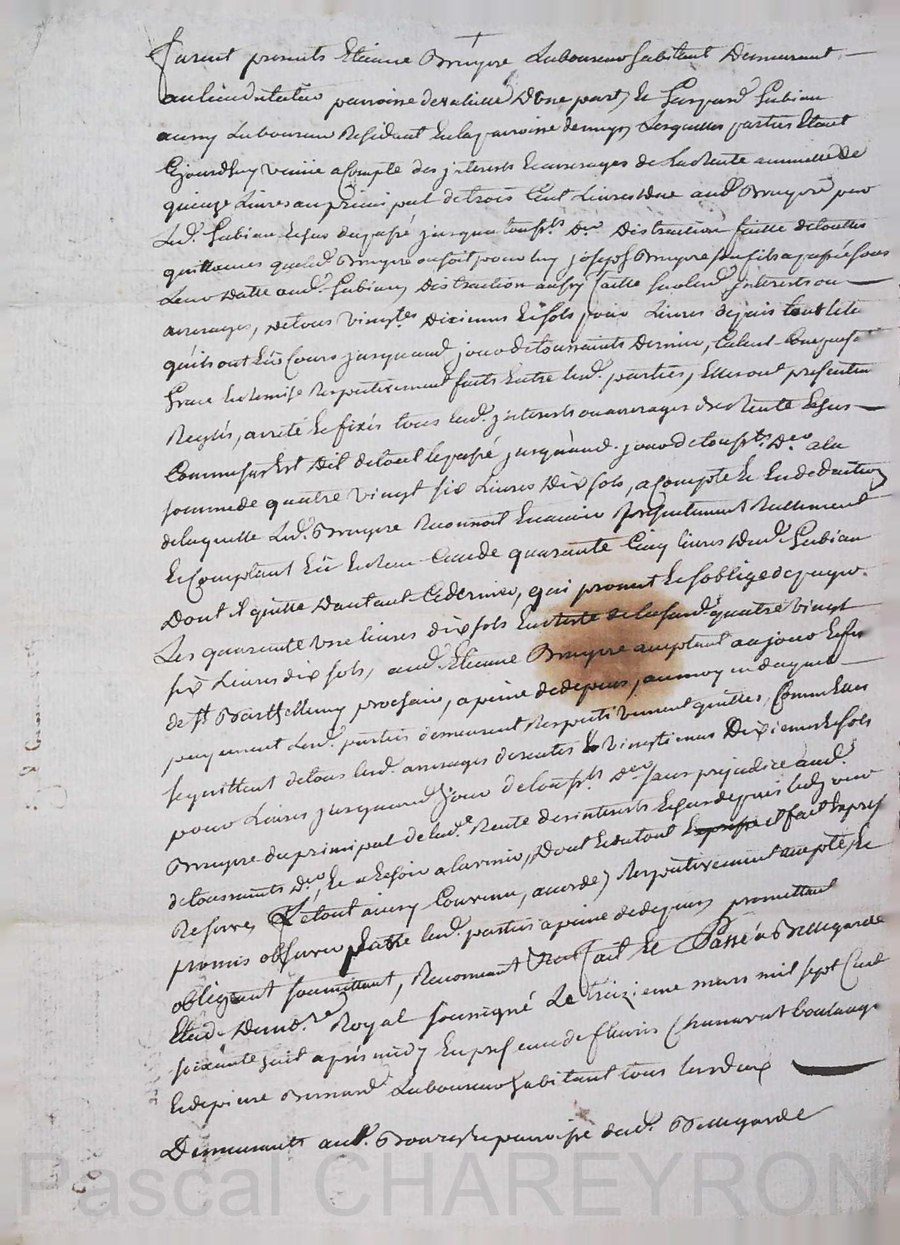 furent presents Etienne Bruyere Laboureur habitant Demeurant
au lieu paroisse de D'Une part, Et Gaspard Fabian
aussy Laboureur Residant En la paroisse de Lesquelles parties Etant
Ejourd'huy venue a Compte des jnterests Et arrerages de La Rente annuelle De
quinze Livres au principal de trois Cent Livres Due aud. Bruyere par
Led. Fabian Et jusqua Der Distraction faitte de touttes
quittances que led. Bruyere ou soit pour luy joseph Bruyere son fils a passé sous
Leur Datte aud. Fabian, Distraction aussy faitte sur led. jnterests ou
arrerages, De tous vingtes Dixiemes Et sols pour Livres
qu'ils ont Eu Cours jusquaud. jour de toussaints Dernier, Calcul Compensa
Grace Et Remise Respectivement faits Entre led. parties, Elles ont presentem
Reglés, arreté Et fixés tous led. jnterests ou arrerages de Rente Echus
Comme jus Est Dit de tout Le passé jusquaud. jour de Der a la
somme de quatre vingt six Livres Dix sols, a Compte Et En deduction
de laquelle Led. Bruyere Reconnoit En avoir presentement Reellement
Et Comptant Eu Et Receu Celle de quarante Cinq livres Dud. Fabian
Dont il quitte D'autant Ce dernier, qui promet Et s'oblige de payer
Les quarante une livres dix sols En Reste de lad. quatre vingt
six Livres dix sols, aud. Etienne Bruyere acceptant au jour Et feste
de St. Barthellemy prochain, a peine de depens, au moyen duquel
payement Led. parties demeurent Respectivement quittes, Comme Elles
se quittent de tous led. arrerages de Rentes & vingtiemes Dixiemes Et sols
pour Livres jusquaud. jour de Der sans prejudice aud.
Bruyere du principal de lad.e Rente Des interests Echus depuis led. jour
de toussaints Der, Et a Echoir a l'avenir, Dont Et du tout il fait Expresse
Reserve, Et tout aussy Convenu, accordé, Respectivement accepté, Et
promis observer par led. parties a peine de depens promettant
obligeant soumettant, Renonceant fait Et Passé a Bellegarde
Etude Du nore Royal soussigné Le treizieme mars mil sept Cent
soixante huit après midy En presence de fleuris Chanavat boulanger
Et de pierre Bernard Laboureur habitant tous Les deux
Demeurants aud. Bourg Et paroisse dud. Bellegarde
Pascal CHAREYRON